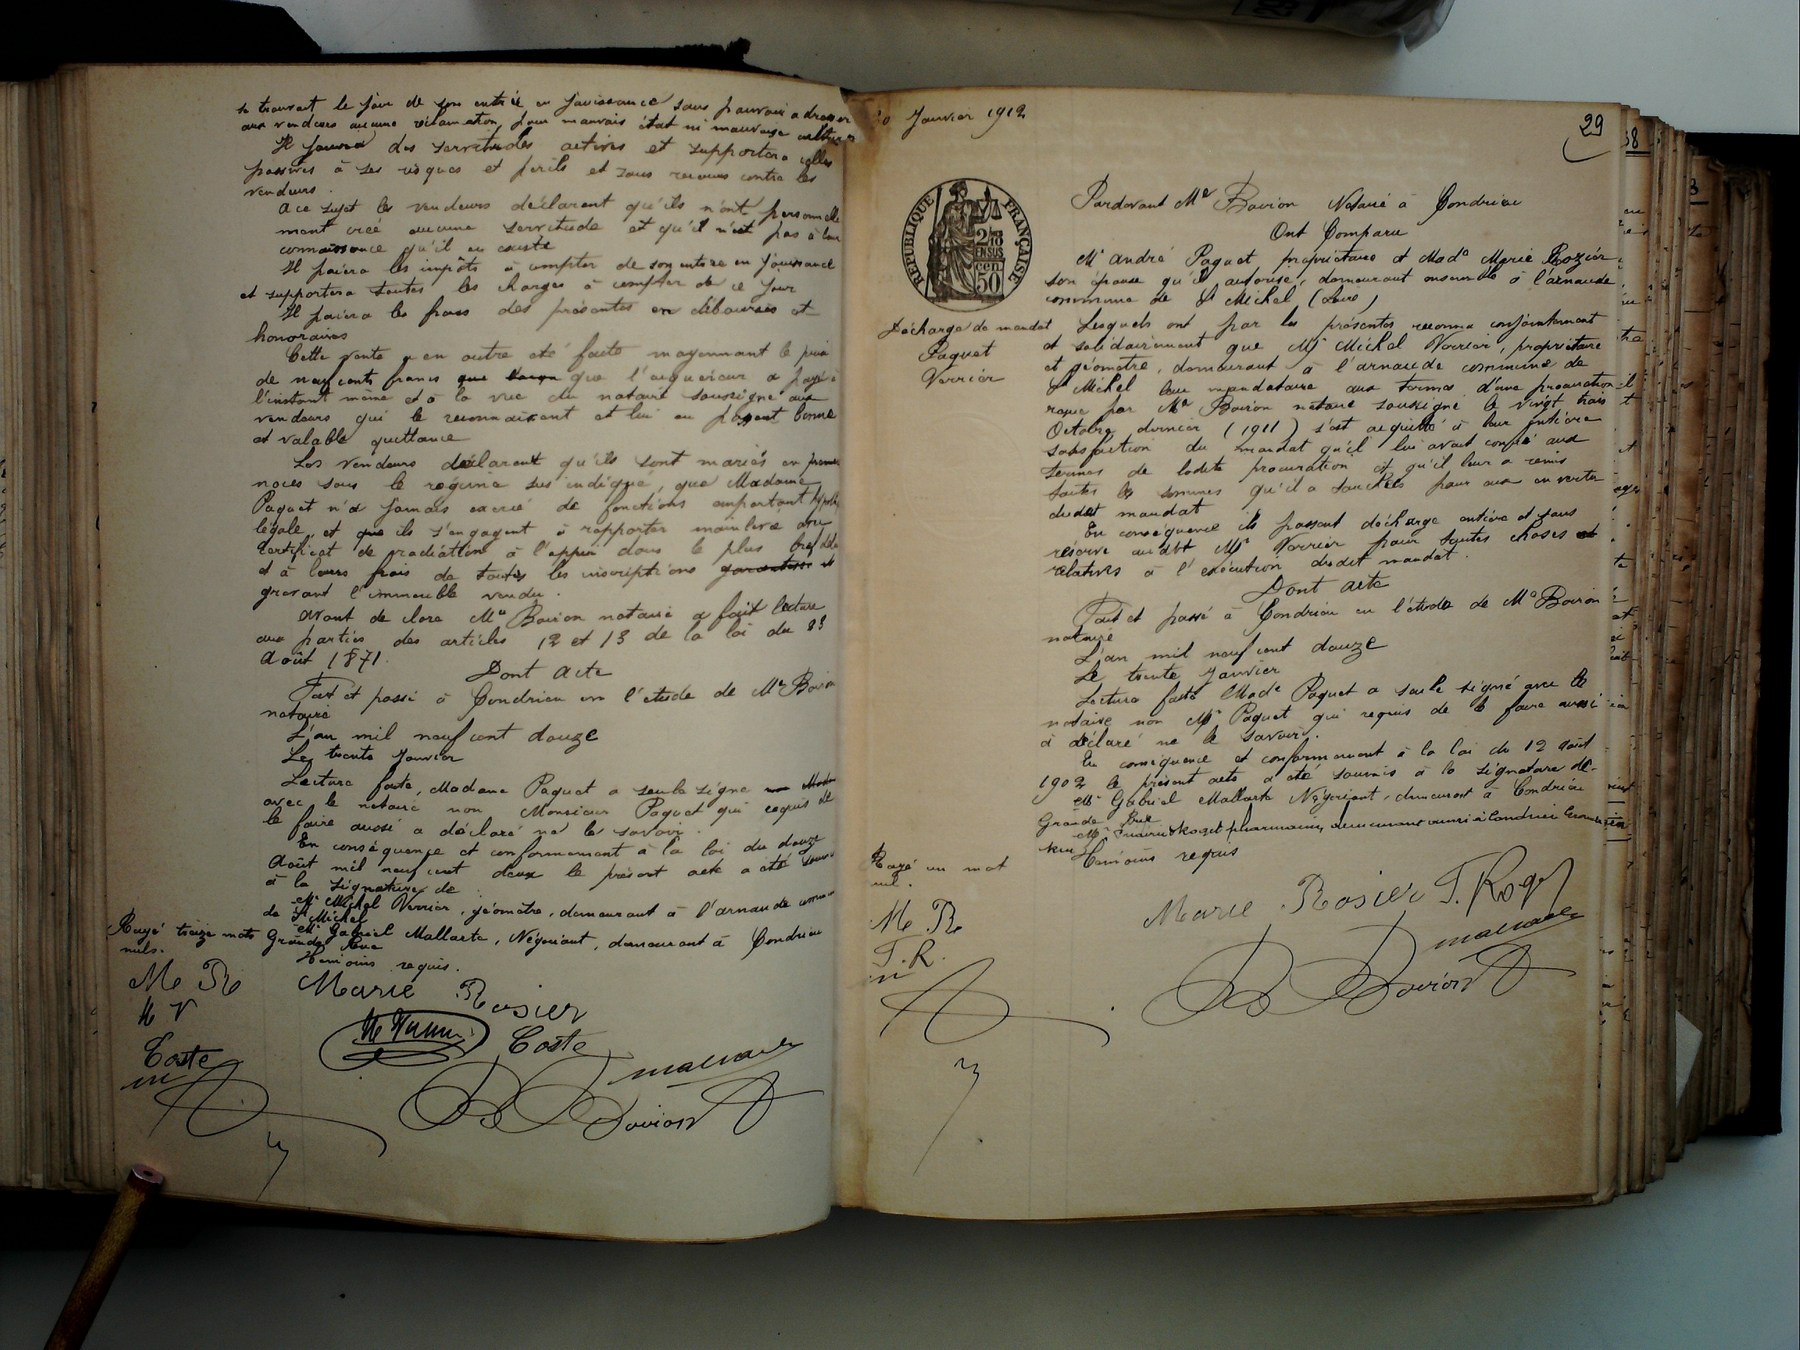 se trouvent le jour de son entrée en jouissance sans pouvoir adresser
aux vendeurs aucune réclamation pour mauvais état ni mauvaise culture
Il jouira des servitudes actives et supportera celles
passives à ses risques et périls et sans recours contre les
vendeurs.
A ce sujet les vendeurs déclarent qu'ils n'ont personnelle
ment créé aucune servitude et qu'il n'est pas à leur
connaissance qu'il en existe
Il paiera les impôts à compter de son entrée en jouissance
et supportera toutes les charges à compter de ce jour
Il paiera les frais des présentes en déboursés et
honoraires
Cette vente a en outre été faite moyennant le prix
de neuf cents francs que l'acquéreur a payé à
l'instant même et à la vue du notaire soussigné aux
vendeurs qui le reconnaissent et lui en passent bonne
et valable quittance
Les vendeurs déclarent qu'ils sont mariés en premières
noces sous le régime sus indiqué, que Madame
Paquet n'a jamais exercé de fonctions emportant hypoth
légale, et que ils s'engagent à rapporter mainlevée avec
certificat de radiation à l'appui dans le plus bref délai
et à leurs frais de toutes les inscriptions garanties et
grevant l'immeuble vendu.
Avant de clore Me Boiron notaire a fait lecture
aux parties des articles 12 et 13 de la loi du 23
Août 1871.
Dont acte
Fait et passé à Condrieu en l'étude de Me Boiron
notaire
L'an mil neuf cent douze
Le trente Janvier
Lecture faite, Madame Paquet a seule signé
avec le notaire non Monsieur Paquet qui requis de
le faire aussi a déclaré ne le savoir.
En conséquence et conformément à la loi du douze
Août mil neuf cent deux le présent acte a été soumis
à la signature de
Mr Michel Verrier, géomètre, demeurant à l'arnaude commune
de St Michel
Mr Gabriel Mallarte, Négociant, demeurant à Condrieu
Grande Rue
Témoins requis.
Rayé treize mots
nuls.
M R
M V
Coste
m
Marie Rosier
M Verrier
Coste
Mallarte
Boiron
30 Janvier 1912
29
38
RÉPUBLIQUE FRANÇAISE
2/10
EN SUS
cen.
50
Décharge de mandat
Paquet
Verrier
Pardevant Me Boiron Notaire à Condrieu
Ont Comparu
Mr André Paquet propriétaire et Made Marie Rozier
son épouse qu'il autorise, demeurant ensemble à l'arnaude
commune de St Michel (Loire)
Lesquels ont par les présentes reconnu conjointement
et solidairement que Mr Michel Verrier, propriétaire
et géomètre, demeurant à l'arnaude commune de
St Michel leur mandataire aux termes d'une procuration
reçue par Me Boiron notaire soussigné le vingt trois
Octobre dernier (1911) s'est acquitté à leur entière
satisfaction du mandat qu'il lui avait confié aux
termes de ladite procuration et qu'il leur a remis
toutes les sommes qu'il a touchées pour eux en vertu
dudit mandat
En conséquence ils passent décharge entière et sans
réserve audit Mr Verrier pour toutes choses et
relatives à l'exécution dudit mandat.
Dont acte
Fait et passé à Condrieu en l'étude de Me Boiron
notaire
L'an mil neuf cent douze
Le trente Janvier
Lecture faite Made Paquet a seule signé avec le
notaire non Mr Paquet qui requis de le faire aussi
a déclaré ne le savoir.
En conséquence et conformément à la loi du 12 Août
1902 le présent acte a été soumis à la signature de
Mr Gabriel Mallarte Négociant, demeurant à Condrieu
Grande Rue
Mr Roget pharmacien, demeurant aussi à Condrieu Grande
Rue
Témoins requis
Rayé un mot
nul.
M R
T. R.
m
Marie Rosier T. Roget
Mallarte
Boiron